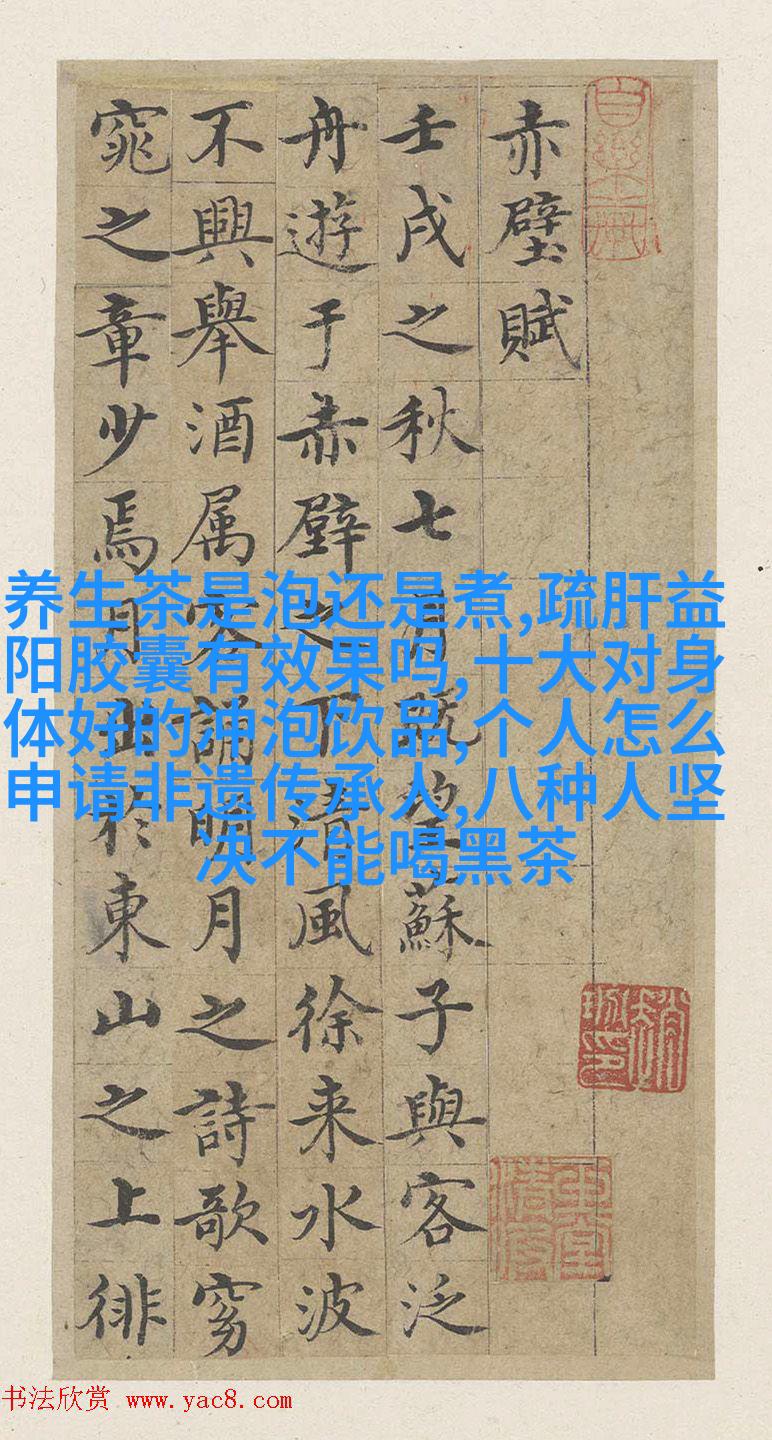 赤壁賦
壬戌之秋七月既望蘇子與客泛
舟遊于赤壁之下清風徐来水波
不興舉酒属客誦明月之詩歌窈
窕之章少焉月出於東山之上徘
养生茶是泡还是煮,疏肝益
阳胶囊有效果吗,十大对身
体好的冲泡饮品,个人怎么
申请非遗传承人,八种人坚
决不能喝黑茶
书法欣赏 www.yac8.com